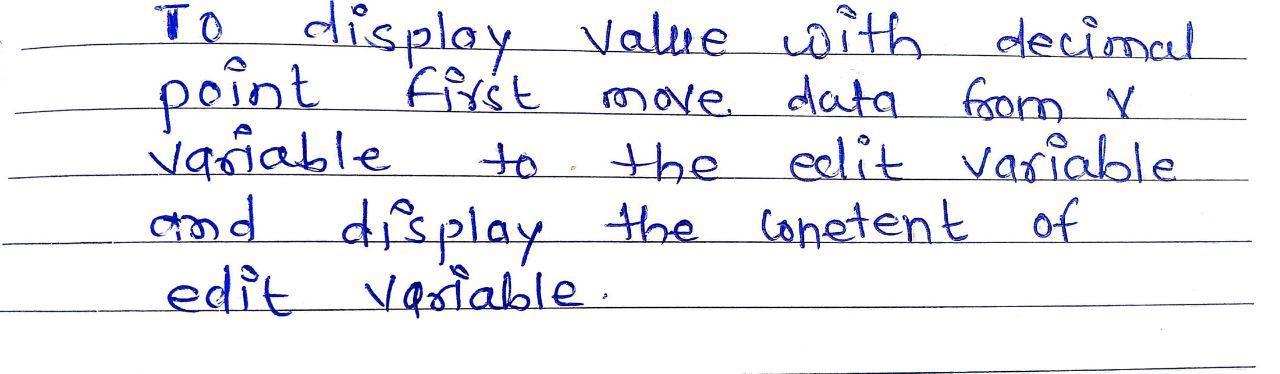 To display value with decimal
point first move data from V
variable to the edit variable
and display the conetent of
edit variable.